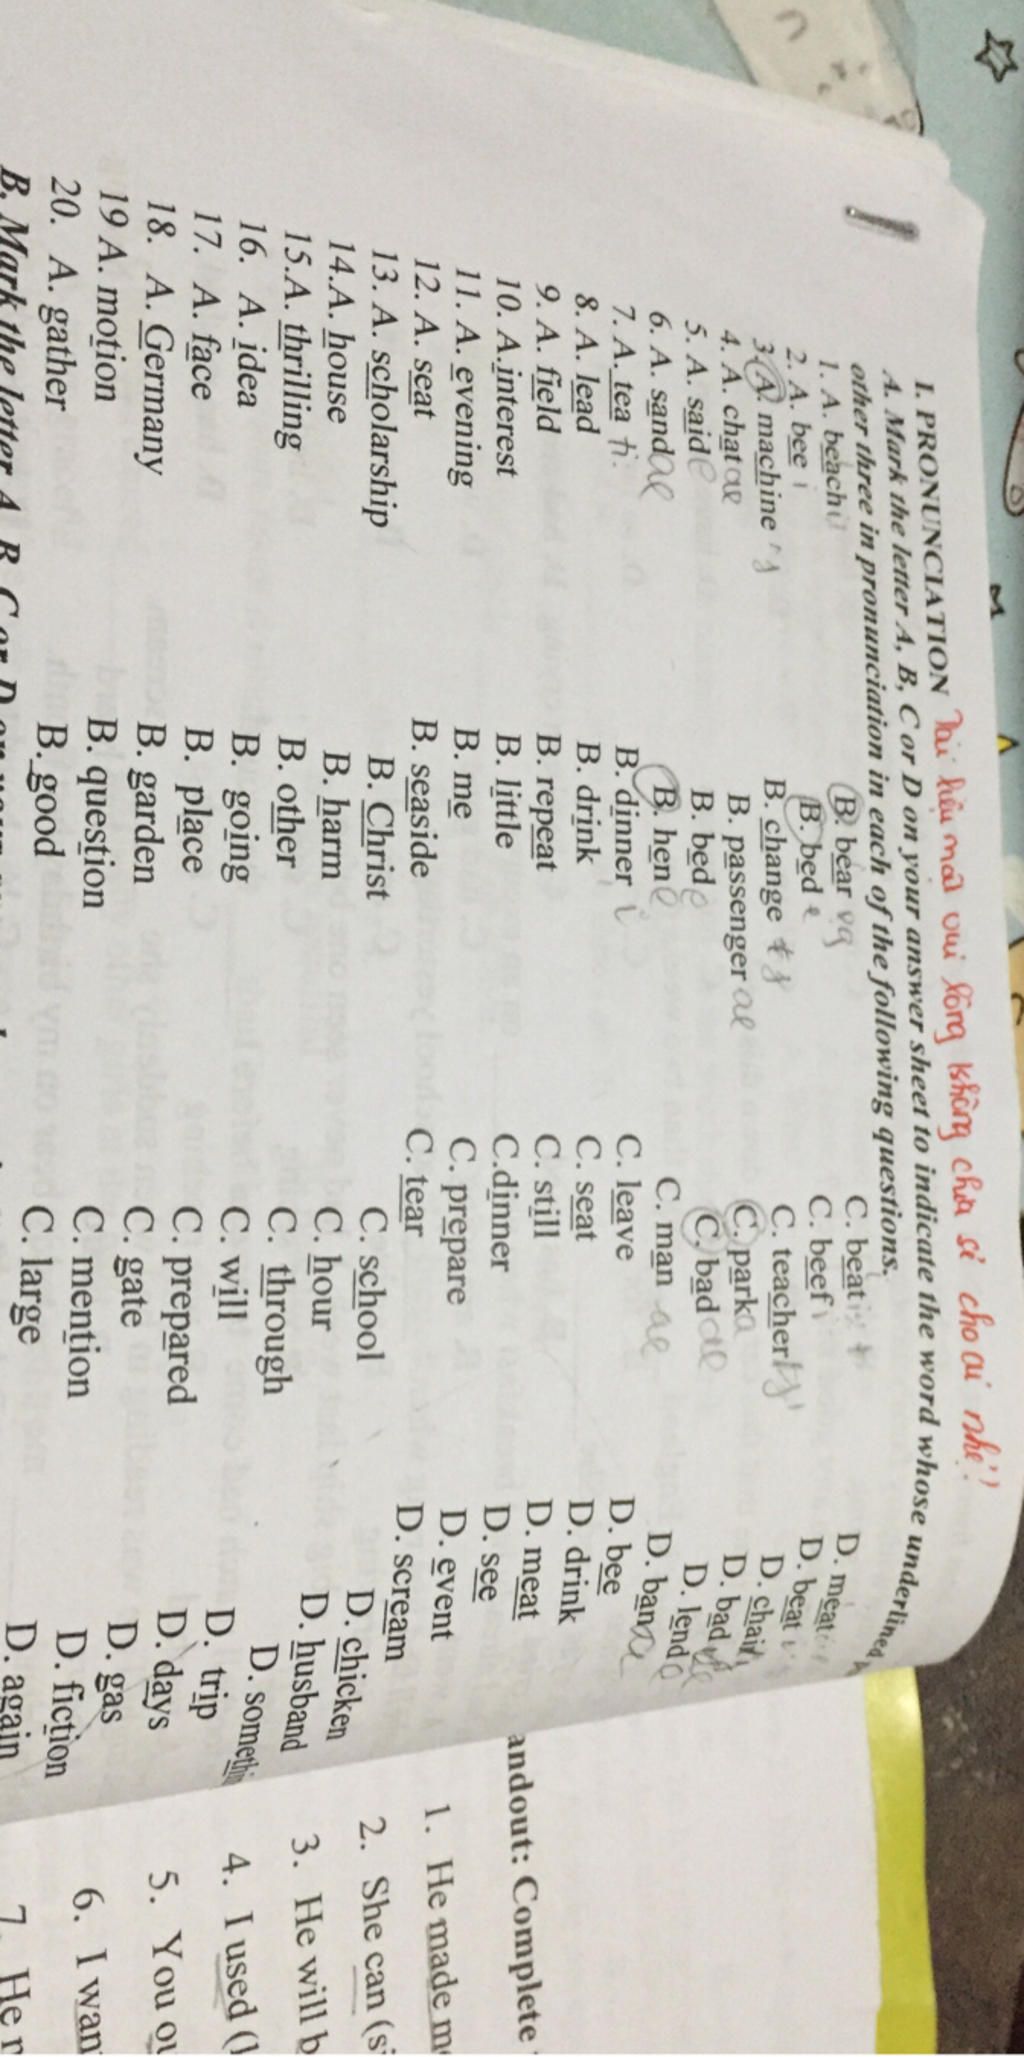 Tài liệu mới vui lòng không chia sẻ cho ai nhé!
I. PRONUNCIATION
A. Mark the letter A, B, C or D on your answer sheet to indicate the word whose underlined
other three in pronunciation in each of the following questions.
1. A. beach B. bear C. beat D. meat
2. A. bee i B. bed e C. beef i D. beat
3 A. machine B. change C. teacher D. chair
4. A. chat ae B. passenger ae C. park a D. bad
5. A. said e B. bed e C. bad ae D. lend e
6. A. sand ae B. hen e C. man ae D. ban
7. A. tea B. dinner i C. leave D. bee
8. A. lead B. drink C. seat D. drink
9. A. field B. repeat C. still D. meat
10. A.interest B. little C.dinner D. see
11. A. evening B. me C. prepare D. event
12. A. seat B. seaside C. tear D. scream
13. A. scholarship B. Christ C. school D. chicken
14.A. house B. harm C. hour D. husband
15.A. thrilling B. other C. through D. somethin
16. A. idea B. going C. will D. trip
17. A. face B. place C. prepared D. days
18. A. Germany B. garden C. gate D. gas
19 A. motion B. question C. mention D. fiction
20. A. gather B. good C. large D. again
B. Mark the letter A, B, C or D on your
andout: Complete
1. He made m
2. She can (s
3. He will b
4. I used (
5. You o
6. I wan
7. He